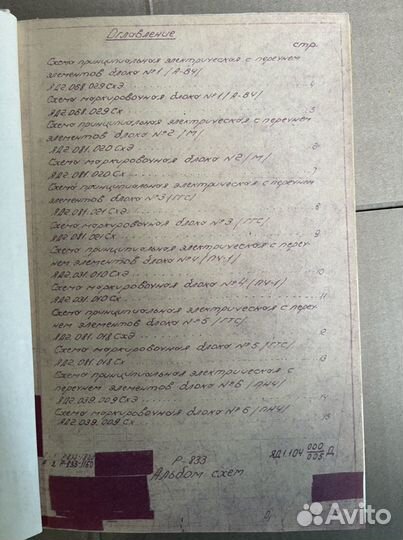 Оглавление
стр.
Схема принципиальная электрическая с перечнем
элементов блока №1 /А-В4/
ЯД2.068.029 СхЭ 4
Схема маркировочная блока №1 /А-В4/
ЯД2.068.029 Сх 5
Схема принципиальная электрическая с перечнем
элементов блока №2 /М/
ЯД2.081.020 СхЭ 6
Схема маркировочная блока №2 /М/
ЯД2.081.020 Сх 7
Схема принципиальная электрическая с перечнем
элементов блока №3 /ГГС/
ЯД2.081.021 СхЭ 8
Схема маркировочная блока №3 /ГГС/
ЯД2.081.021 Сх 9
Схема принципиальная электрическая с переч-
нем элементов блока №4 /ПЧ-1/
ЯД2.031.010 СхЭ 10
Схема маркировочная блока №4 /ПЧ-1/
ЯД2.031.010 Сх 11
Схема принципиальная электрическая с переч-
нем элементов блока №5 /ГТС/
ЯД2.081.018 СхЭ 12
Схема маркировочная блока №5 /ГТС/
ЯД2.081.018 Сх 13
Схема принципиальная электрическая с
перечнем элементов блока №6 /ПНЧ/
ЯД2.039.009 СхЭ 14
Схема маркировочная блока №6 /ПНЧ/
ЯД2.039.009 Сх 15
Р-833
Альбом схем
ЯД1.104 000
005 Д
Avito